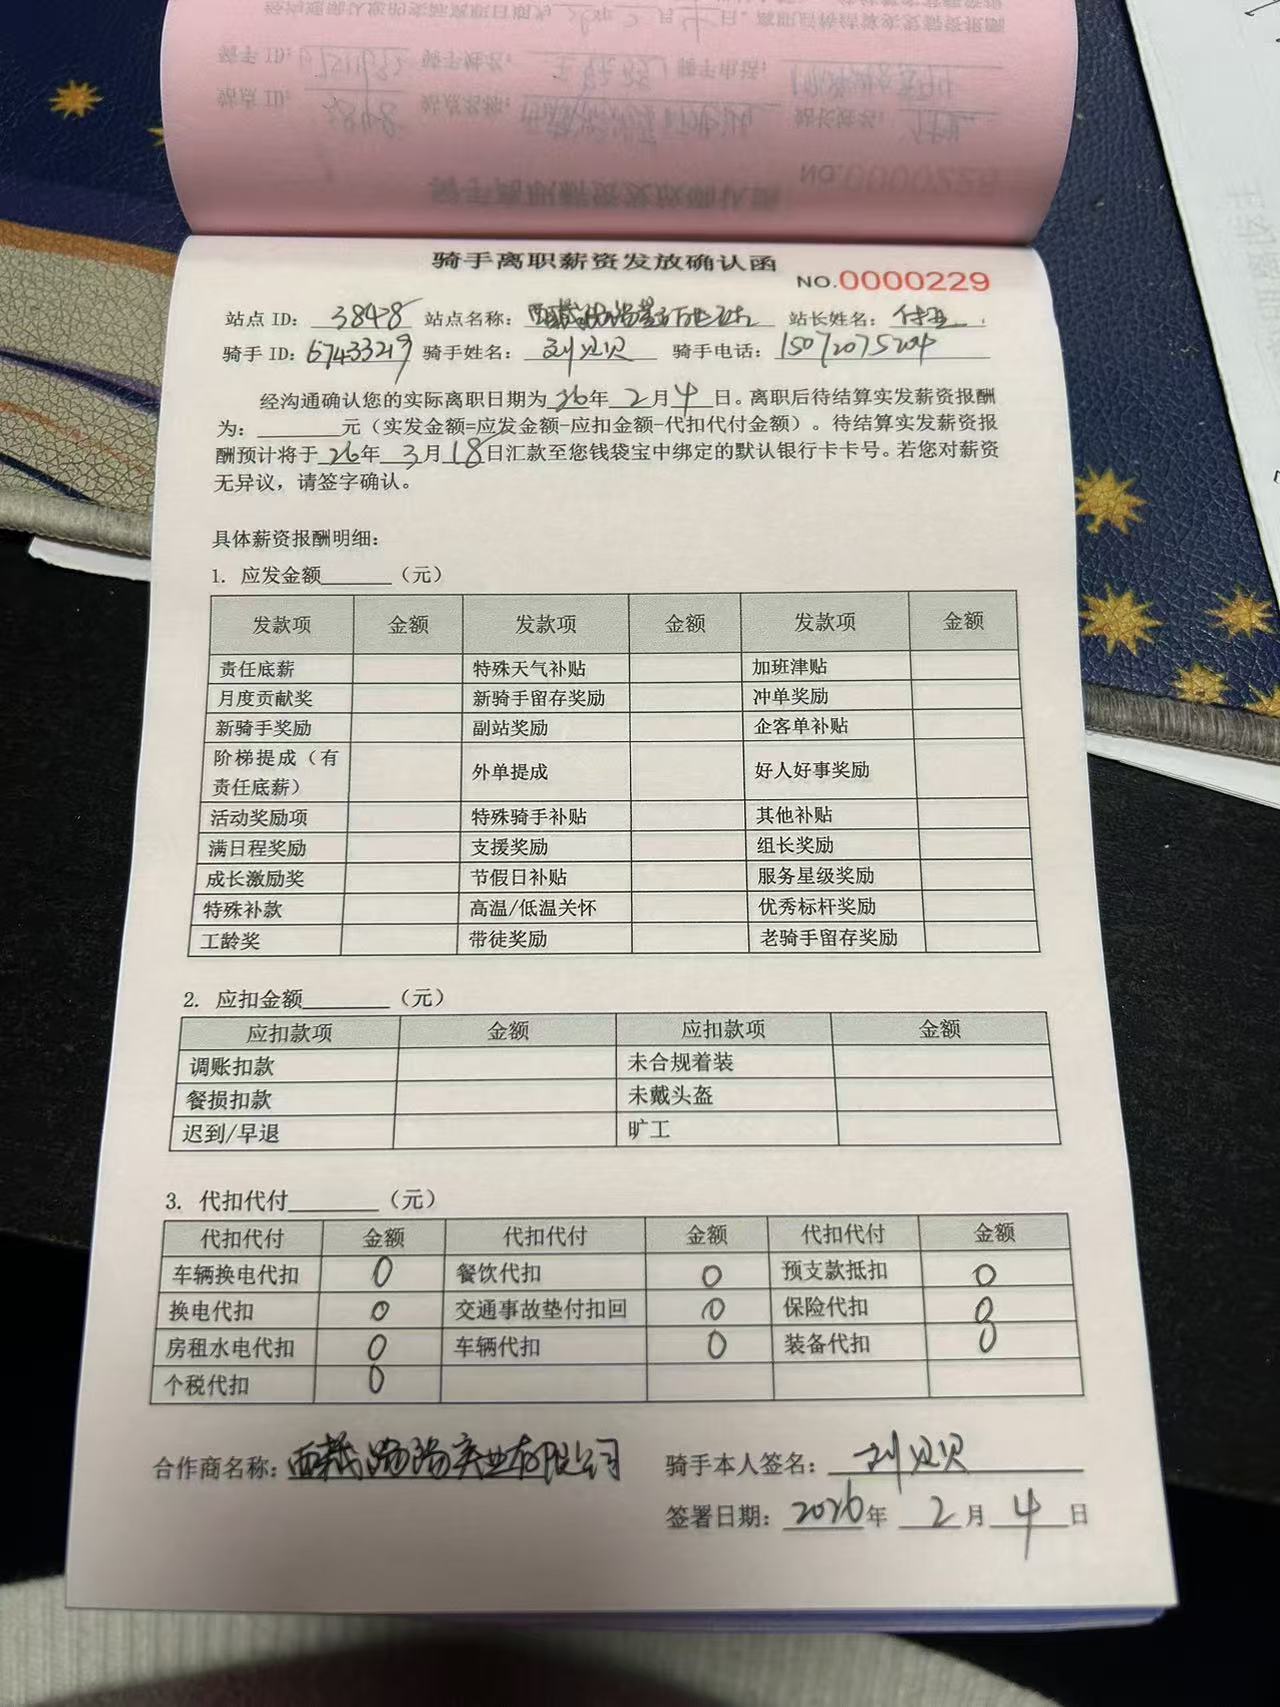 骑手离职薪资发放确认函
NO.0000229
站点 ID: 38428 站点名称: 西藏 站 站长姓名: 付
骑手 ID: 67433219 骑手姓名: 刘贝贝 骑手电话: 15072075204
经沟通确认您的实际离职日期为 26 年 2 月 4 日。离职后待结算实发薪资报酬
为: 元（实发金额=应发金额-应扣金额-代扣代付金额）。待结算实发薪资报
酬预计将于 26 年 3 月 18 日汇款至您钱袋宝中绑定的默认银行卡卡号。若您对薪资
无异议，请签字确认。
具体薪资报酬明细:
1. 应发金额 （元）
发款项 金额 发款项 金额 发款项 金额
责任底薪 特殊天气补贴 加班津贴
月度贡献奖 新骑手留存奖励 冲单奖励
新骑手奖励 副站奖励 企客单补贴
阶梯提成（有
责任底薪） 外单提成 好人好事奖励
活动奖励项 特殊骑手补贴 其他补贴
满日程奖励 支援奖励 组长奖励
成长激励奖 节假日补贴 服务星级奖励
特殊补款 高温/低温关怀 优秀标杆奖励
工龄奖 带徒奖励 老骑手留存奖励
2. 应扣金额 （元）
应扣款项 金额 应扣款项 金额
调账扣款 未合规着装
餐损扣款 未戴头盔
迟到/早退 旷工
3. 代扣代付 （元）
代扣代付 金额 代扣代付 金额 代扣代付 金额
车辆换电代扣 0 餐饮代扣 0 预支款抵扣 0
换电代扣 0 交通事故垫付扣回 0 保险代扣 0
房租水电代扣 0 车辆代扣 0 装备代扣 0
个税代扣 0
合作商名称: 西藏 实业有限公司 骑手本人签名: 刘贝贝
签署日期: 2026 年 2 月 4 日